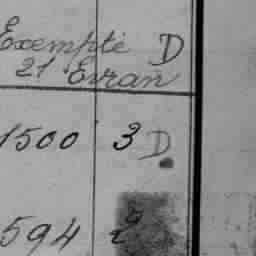 Exempté D
21 Evran
1500 3 D
594 2